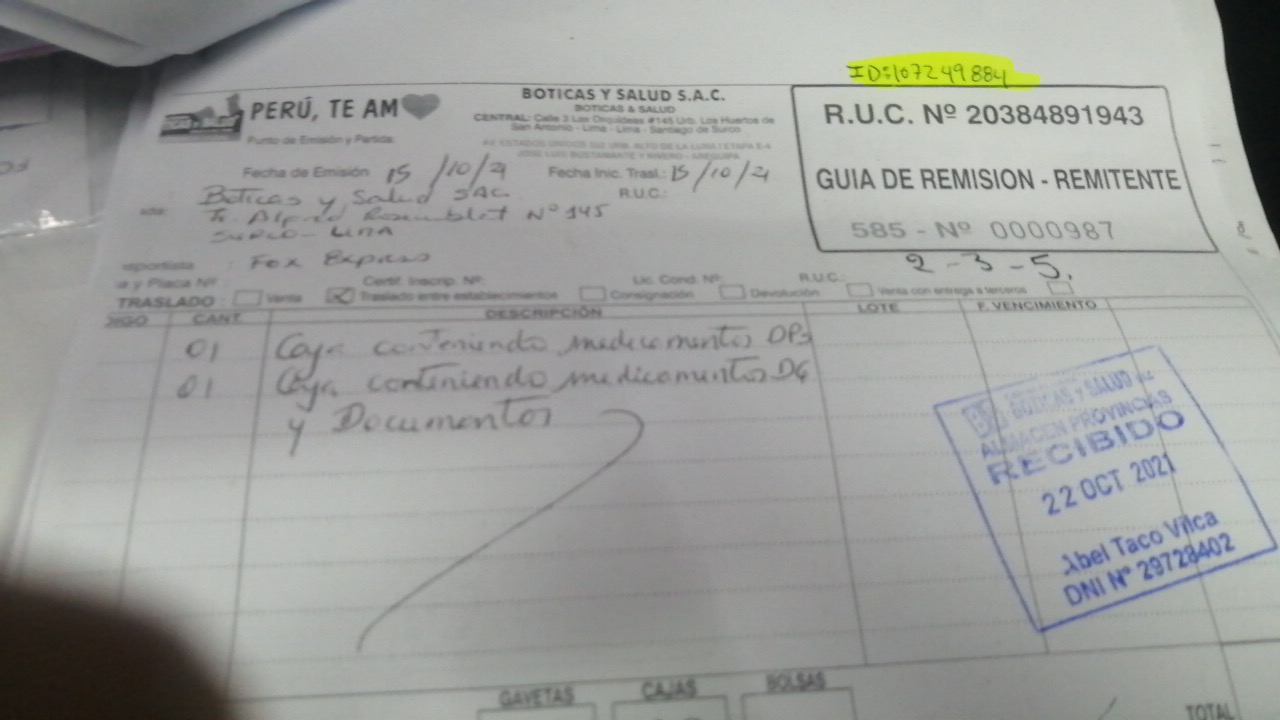 ID:107249884
PERÚ, TE AM
BOTICAS Y SALUD S.A.C.
BOTICAS & SALUD
CENTRAL: Calle 3 Las Orquídeas #145 Urb. Los Huertos de
San Antonio - Lima - Lima - Santiago de Surco
AV. ESTADOS UNIDOS URB. ALTO DE LA LUNA I ETAPA
JOSE LUIS BUSTAMANTE Y RIVERO - AREQUIPA
R.U.C. Nº 20384891943
GUIA DE REMISION - REMITENTE
585 - Nº 0000987
Punto de Emisión y Partida:
Fecha de Emisión 15/10/21 Fecha Inic. Trasl.: 15/10/21
Boticas y Salud SAC R.U.C.:
Nº 145
SURCO - LIMA
Fox Express
2-3-5.
a y Placa Nº: Certif. Inscrip. Nº: Lic. Cond. Nº: R.U.C.:
TRASLADO: Venta Traslado entre establecimientos Consignación Devolución Venta con entrega a terceros
DIGO CANT. DESCRIPCIÓN LOTE F. VENCIMIENTO
01 Caja conteniendo medicamentos DPs
01 Caja conteniendo medicamentos DG
y Documentos
BOTICAS Y SALUD SAC
ALMACEN PROVINCIAS
RECIBIDO
22 OCT 2021
Abel Taco Vilca
DNI Nº 29728402
GAVETAS CAJAS BOLSAS
TOTAL